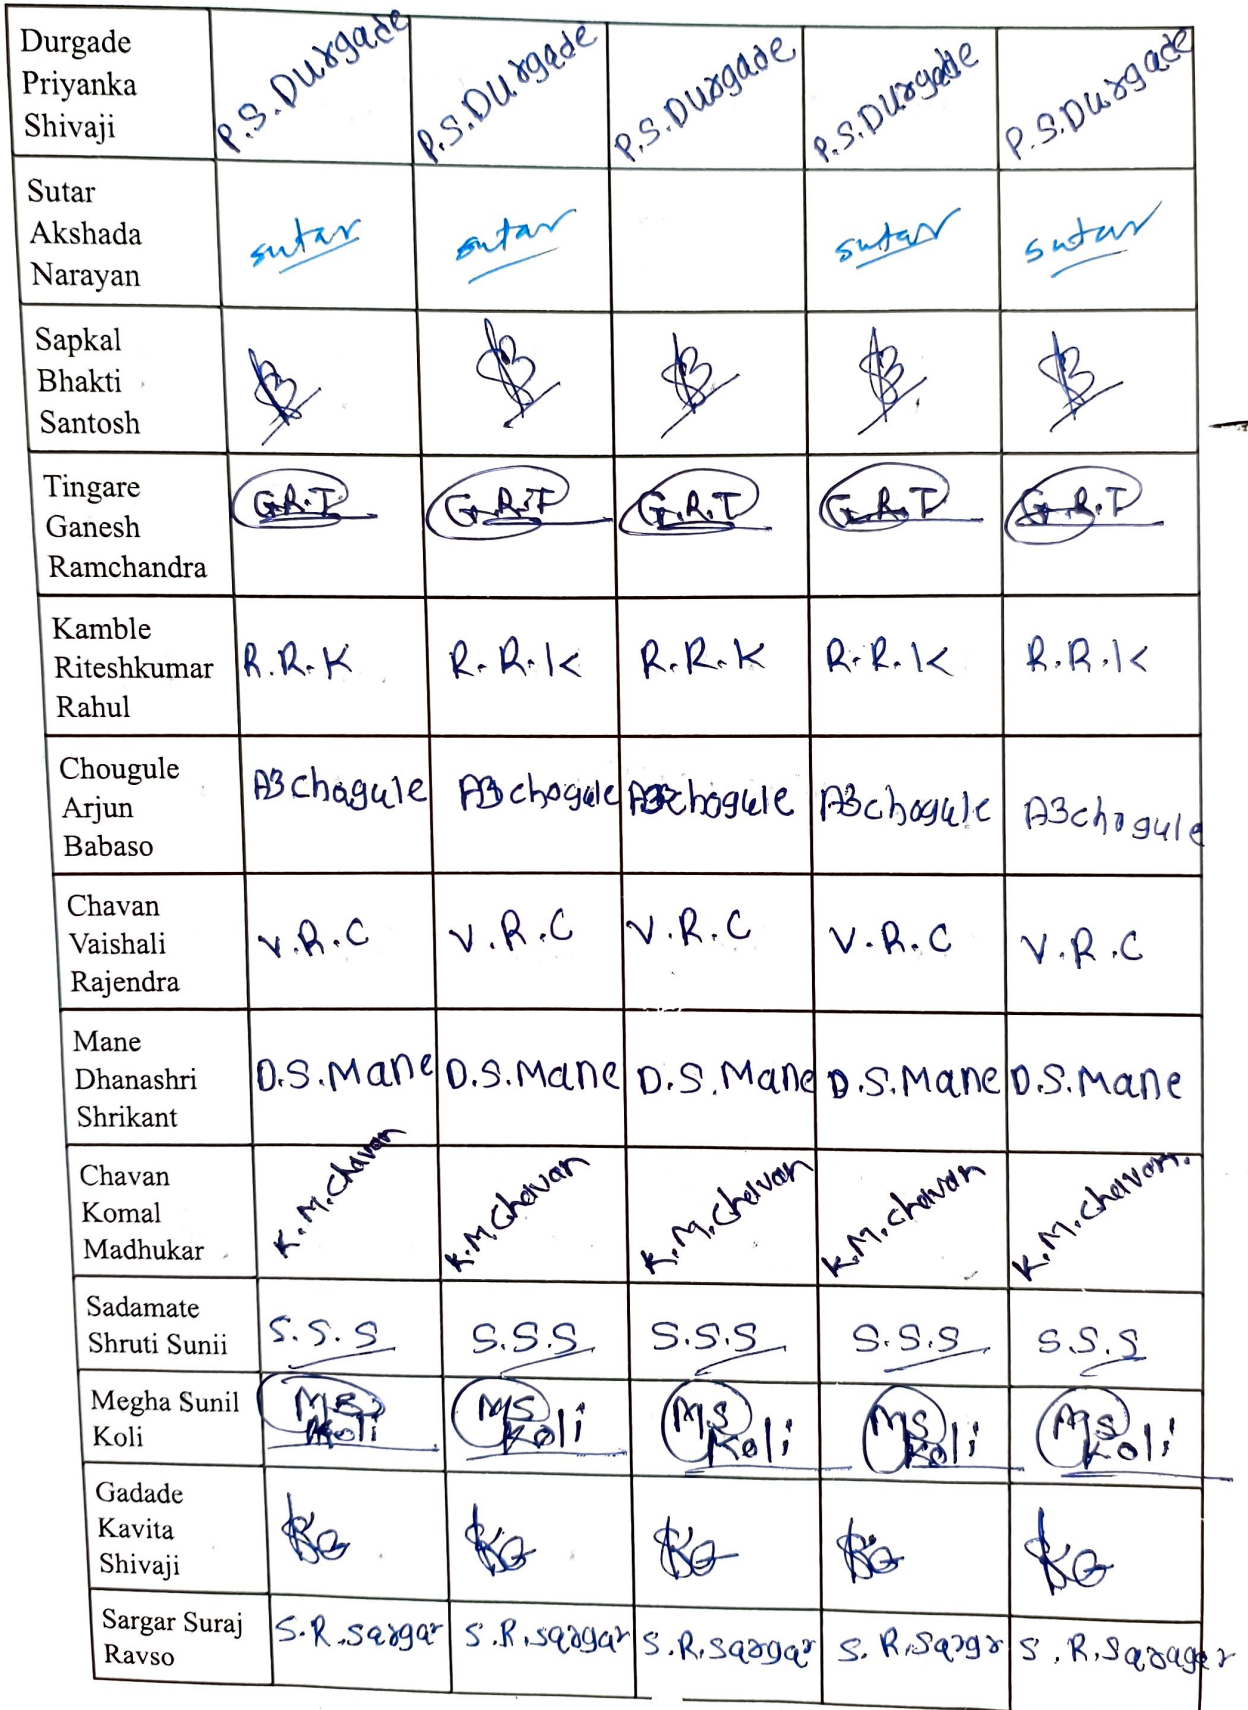 Durgade
Priyanka
Shivaji
P.S.Durgade P.S.Durgade P.S.Durgade P.S.Durgade P.S.Durgade
Sutar
Akshada
Narayan
sutar sutar sutar sutar
Sapkal
Bhakti
Santosh
Tingare
Ganesh
Ramchandra
G.R.T G.R.T G.R.T G.R.T G.R.T
Kamble
Riteshkumar
Rahul
R.R.K R.R.K R.R.K R.R.K R.R.K
Chougule
Arjun
Babaso
ABchagule ABchogule ABchogule ABchogule ABchogule
Chavan
Vaishali
Rajendra
V.R.C V.R.C V.R.C V.R.C V.R.C
Mane
Dhanashri
Shrikant
D.S.Mane D.S.Mane D.S.Mane D.S.Mane D.S.Mane
Chavan
Komal
Madhukar
K.M.Chavan K.M.Chavan K.M.Chavan K.M.Chavan K.M.Chavan.
Sadamate
Shruti Sunii
S.S.S S.S.S S.S.S S.S.S S.S.S
Megha Sunil
Koli
MS MS MS MS MS
Koli Koli Koli Koli Koli
Gadade
Kavita
Shivaji
KG KG KG KG KG
Sargar Suraj
Ravso
S.R.Sargar S.R.Sargar S.R.Sargar S.R.Sargr S.R.Saragar